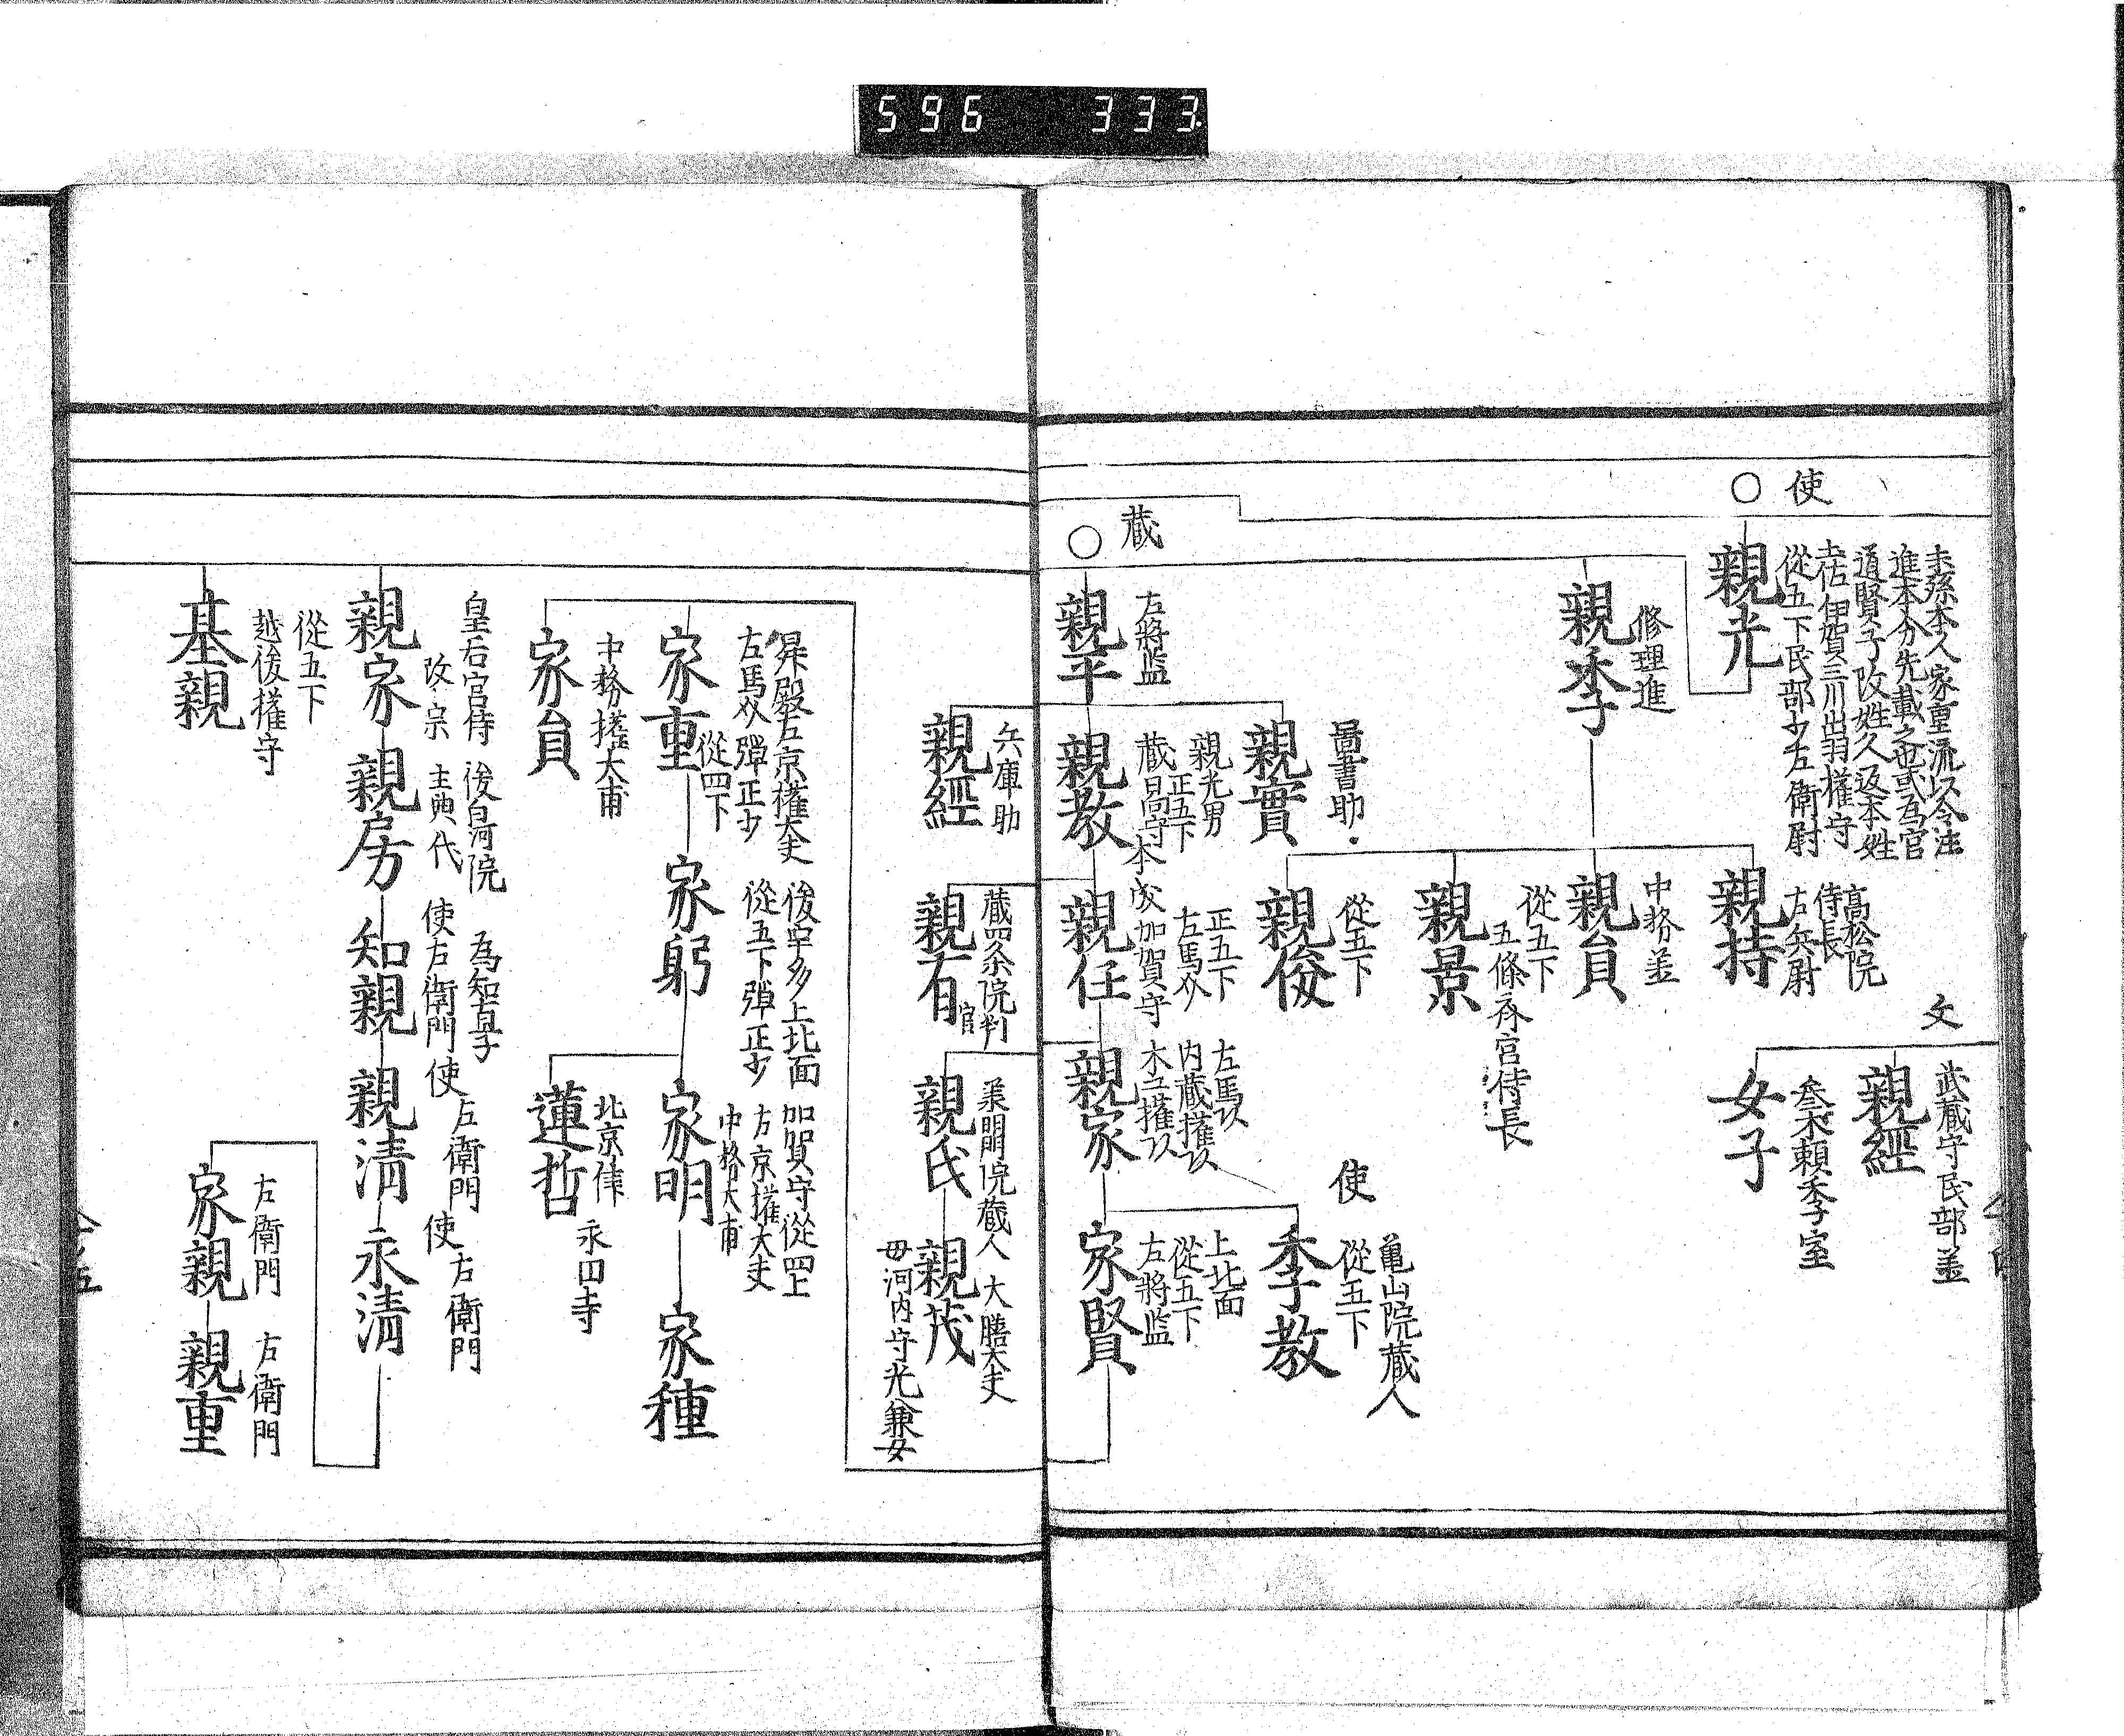 596 333.
使
親光
圭孫本人家重流以今注
進本分先載之也或為官
道賢子改姓久返本姓
圭佐伊賀三川出羽権守
從五下民部少左衛尉
親季
修理進
親持
髙松院
侍長
右兵尉
親貟
中務丞
親景
從五下
五條斎宮侍長
親俊
從五下
文
親經
武蔵守民部丞
女子
叅木頼季室
蔵
親平
左將監
親實
圖書助
親教
親光男
正五下
蔵
守
本
加賀守
親任
正五下
左馬
親家
左馬
内蔵權
木工權
使
季教
亀山院蔵人
從五下
家賢
上北面
從五下
左將監
親經
兵庫助
親有
蔵四条院判
官
親氏
蔵人
親茂
大膳大夫
母河内守光兼女
家重
昇殿左京權大夫
左馬 彈正少
從四下
家躬
後宇多上北面
從五下彈正少
家明
加賀守從四上
右京權大夫
中務大甫
家種
蓮哲
北京律
永円寺
家貟
中務權大甫
親家
皇后宮侍
改宗
親房
後白河院
主典代
知親
為知貞子
使右衛門
親清
使
左衛門
永清
使
右衛門
家親
左衛門
親重
右衛門
基親
從五下
越後權守